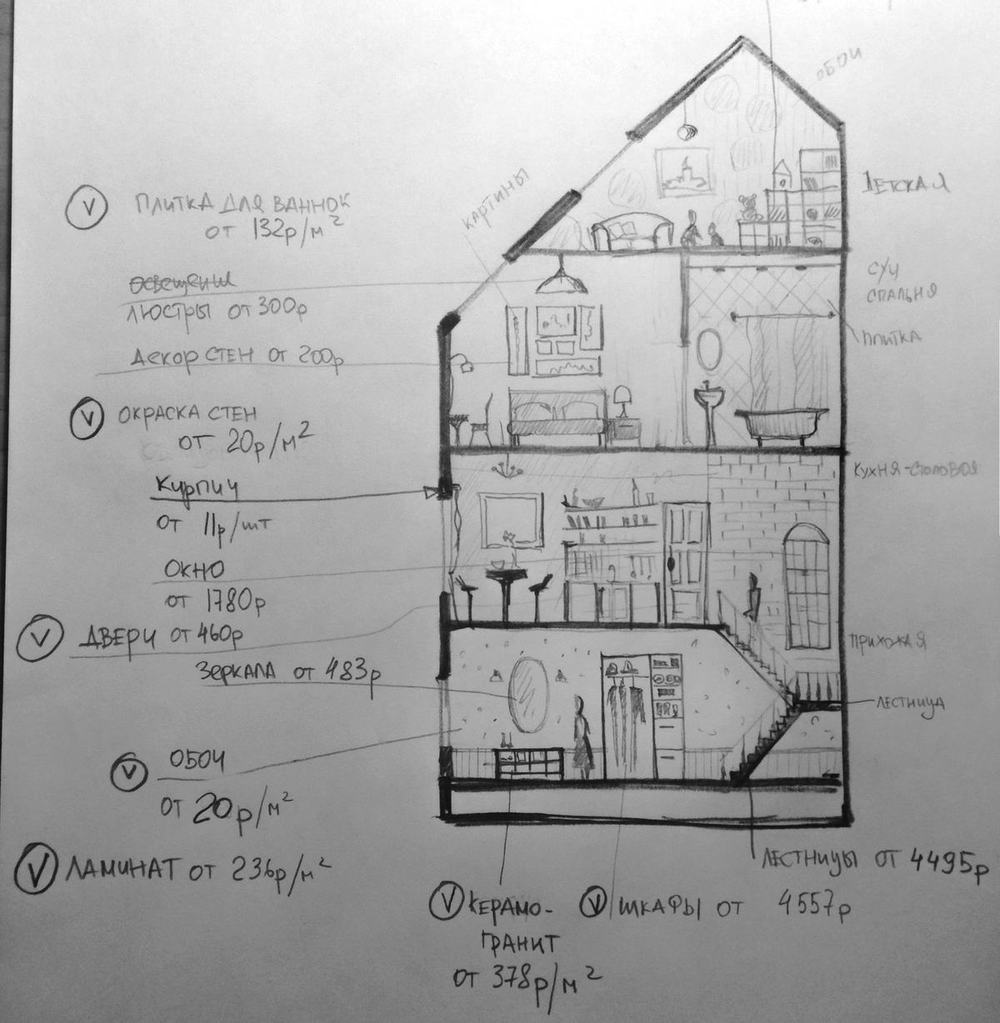 ОБОИ
КАРТИНЫ
ДЕТСКАЯ
ПЛИТКА ДЛЯ ВАННОК
ОТ 132р/м²
освещение
люстры от 300р
С/У
СПАЛЬНЯ
ПЛИТКА
Декор СТЕН от 200р
ОКРАСКА СТЕН
ОТ 20р/м²
КУХНЯ-СТОЛОВАЯ
Кирпич
ОТ 11р/шт
ОКНО
от 1780р
ДВЕРИ от 460р
ПРИХОЖАЯ
Зеркала от 483р
ЛЕСТНИЦА
ОБОИ
ОТ 20р/м²
ЛАМИНАТ ОТ 236р/м²
ЛЕСТНИЦЫ ОТ 4495р
КЕРАМО-
ГРАНИТ
ОТ 378р/м²
ШКАФЫ ОТ 4557р